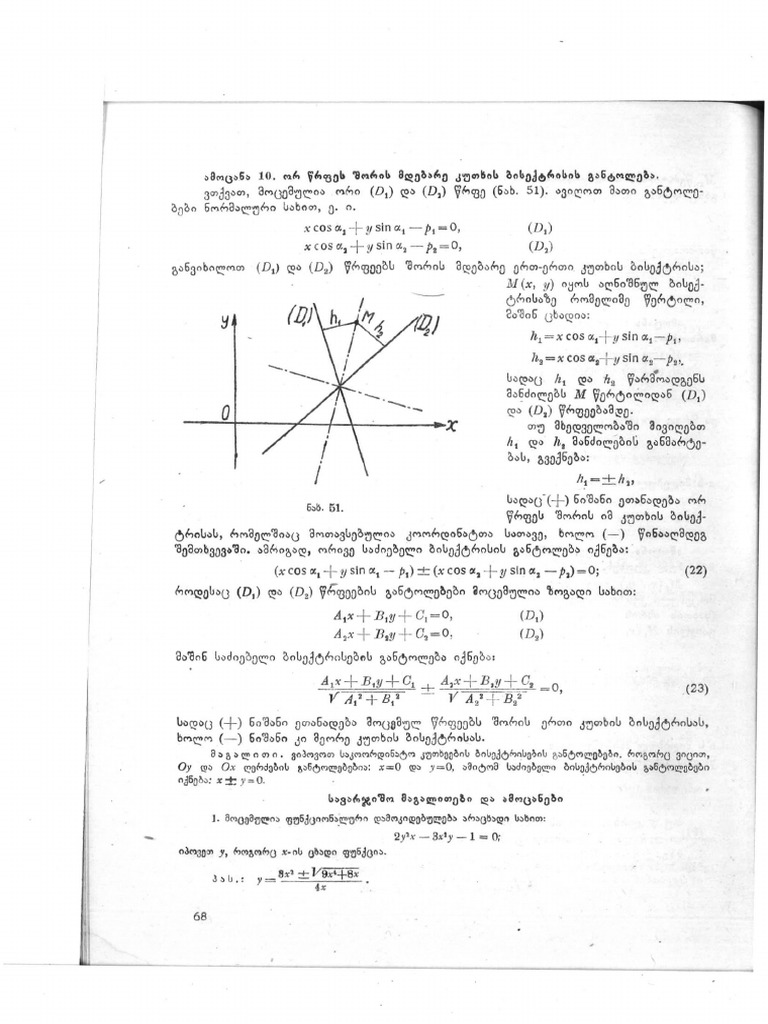 ამოცანა 10. ორ წრფეს შორის მდებარე კუთხის ბისექტრისის განტოლება.
ვთქვათ, მოცემულია ორი (D₁) და (D₂) წრფე (ნახ. 51). ავიღოთ მათი განტოლე-
ბები ნორმალური სახით, ე. ი.
x cos α₁ + y sin α₁ — p₁ = 0, (D₁)
x cos α₂ + y sin α₂ — p₂ = 0, (D₂)
განვიხილოთ (D₁) და (D₂) წრფეებს შორის მდებარე ერთ-ერთი კუთხის ბისექტრისა;
M (x, y) იყოს აღნიშნულ ბისექ-
ტრისაზე რომელიმე წერტილი,
მაშინ ცხადია:
h₁ = x cos α₁ + y sin α₁ — p₁,
h₂ = x cos α₂ + y sin α₂ — p₂,
სადაც h₁ და h₂ წარმოადგენს
მანძილებს M წერტილიდან (D₁)
და (D₂) წრფეებამდე.
თუ მხედველობაში მივიღებთ
h₁ და h₂ მანძილების განმარტე-
ბას, გვექნება:
h₁ = ± h₂,
y (D₁) h₁ M h₂ (D₂)
O x
ნახ. 51.
სადაც (+) ნიშანი ეთანადება ორ
წრფეს შორის იმ კუთხის ბისექ-
ტრისას, რომელშიაც მოთავსებულია კოორდინატთა სათავე, ხოლო (—) წინააღმდეგ
შემთხვევაში. ამრიგად, ორივე საძიებელი ბისექტრისის განტოლება იქნება:
(x cos α₁ + y sin α₁ — p₁) ± (x cos α₂ + y sin α₂ — p₂) = 0; (22)
როდესაც (D₁) და (D₂) წრფეების განტოლებები მოცემულია ზოგადი სახით:
A₁x + B₁y + C₁ = 0, (D₁)
A₂x + B₂y + C₂ = 0, (D₂)
მაშინ საძიებელი ბისექტრისების განტოლება იქნება:
(A₁x + B₁y + C₁)/√(A₁² + B₁²) ± (A₂x + B₂y + C₂)/√(A₂² + B₂²) = 0, (23)
სადაც (+) ნიშანი ეთანადება მოცემულ წრფეებს შორის ერთი კუთხის ბისექტრისას,
ხოლო (—) ნიშანი კი მეორე კუთხის ბისექტრისას.
მაგალითი. ვიპოვოთ საკოორდინატო კუთხეების ბისექტრისების განტოლებები. როგორც ვიცით,
Oy და Ox ღერძების განტოლებებია: x=0 და y=0, ამიტომ საძიებელი ბისექტრისების განტოლებები
იქნება: x ± y = 0.
სავარჯიშო მაგალითები და ამოცანები
1. მოცემულია ფუნქციონალური დამოკიდებულება არაცხადი სახით:
2y²x — 3x²y — 1 = 0;
იპოვეთ y, როგორც x-ის ცხადი ფუნქცია.
პას.: y = (3x² ± √(9x⁴+8x))/4x.
68